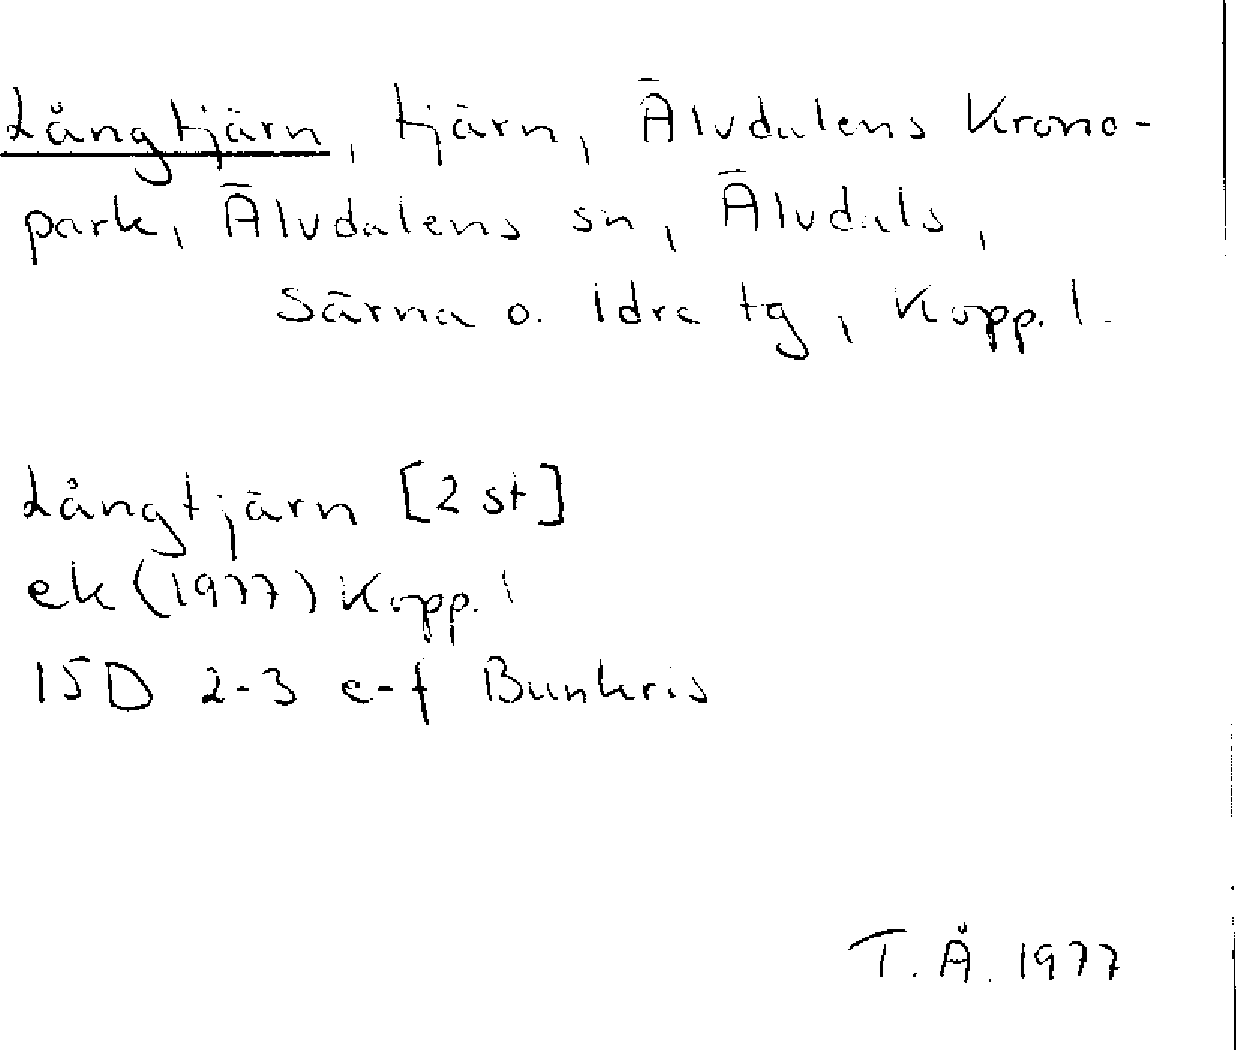 Långtjärn, tjärn, Älvdalens Krono-
park, Älvdalens sn, Älvdals,
Särna o. Idre tg, Kopp. l.
Långtjärn [2 st]
ek (1977) Kopp. l
15D 2-3 e-f Bunkris
T. Å. 1977